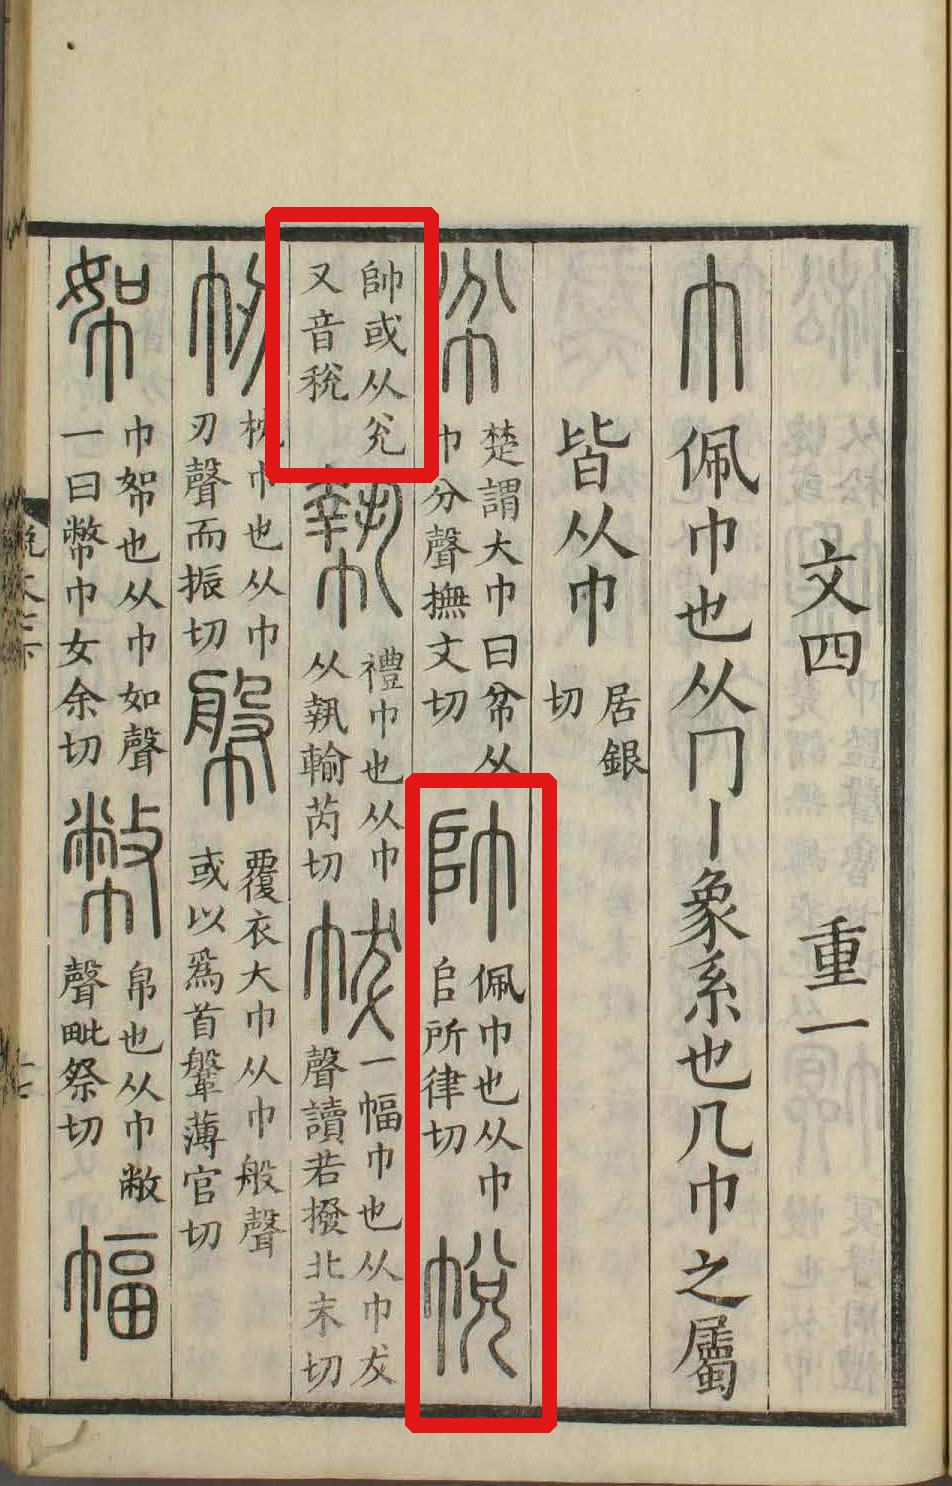 文四 重一
巾佩巾也从冂丨象系也凡巾之屬
皆从巾居銀
切
帉楚謂大巾曰帉从
巾分聲撫文切
帥佩巾也从巾
𠂤所律切
帨
帥或从兊
又音稅
𢄢禮巾也从巾
从執輸芮切
帗一幅巾也从巾犮
聲讀若撥北末切
㠴枕巾也从巾
刃聲而振切
幋覆衣大巾从巾般聲
或以爲首鞶薄官切
帤巾帤也从巾如聲
一曰幣巾女余切
幣帛也从巾敝
聲毗祭切
幅